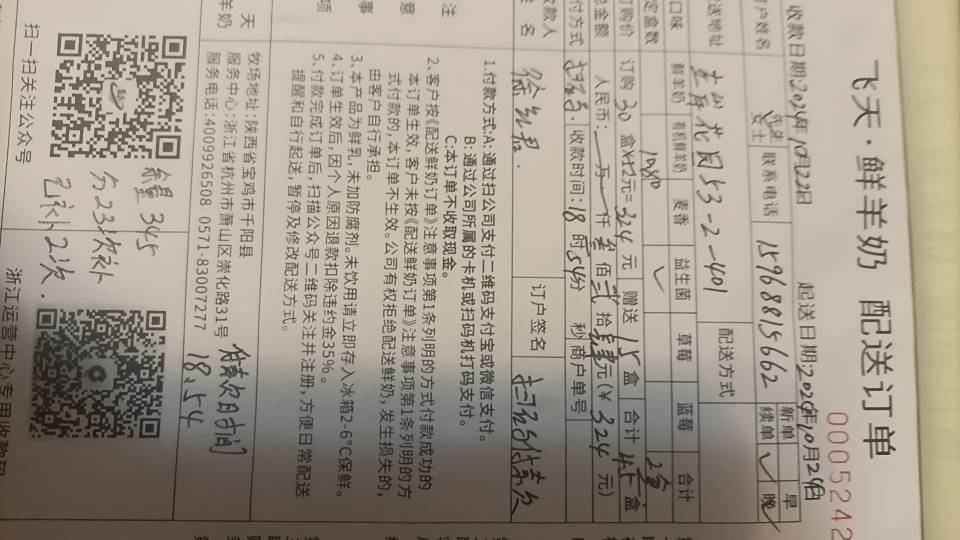 飞天·鲜羊奶 配送订单
0005242
收款日期:2024年10月22日 起送日期:2024年10月24日
订户姓名 先生 女士 联系电话 15968815662 新单 续单 ✓ 早 晚 ✓
送地址 兰荷花园53-2-401 配送方式
口味 鲜羊奶 有机鲜羊奶 麦香 益生菌 草莓 蓝莓 合计
定盒数 1080 ✓ 2盒
订购价 订购 30 盒 元=324元 赠送 15 盒 合计 45 盒
总金额 人民币: 万 仟 叁 佰 贰 拾 肆 元(¥ 324 元)
付方式 扫码 收款时间:18时54分 秒 商户单号
收款人 姓名 订户签名 扫码付款
1.付款方式:A:通过扫公司支付二维码支付宝或微信支付。
B:通过公司所属的卡机或扫码机打码支付。
C:本订单不收取现金。
2、客户按《配送鲜奶订单》注意事项第1条列明的方式付款成功的
本订单生效,客户未按《配送鲜奶订单》注意事项第1条列明的方
式付款的,本订单不生效。公司有权拒绝配送鲜奶,发生损失的,
由客户自行承担。
3、本产品为鲜乳,未加防腐剂。未饮用请立即存入冰箱2-6℃保鲜。
4、订单生效后,因个人原因退款扣除违约金35%。
5、付款完成订单后,扫描公众号二维码关注并注册,方便日常配送
提醒和自行起送,暂停及修改配送方式。
注
意
事
项
天
羊奶
牧场地址:陕西省宝鸡市千阳县
服务中心:浙江省杭州市萧山区崇化路31号
服务电话:4009926508 0571-83007277
付款时间
18:54
345
分23次补
已补2次.
扫一扫关注公众号
浙江运营中心专用收款码